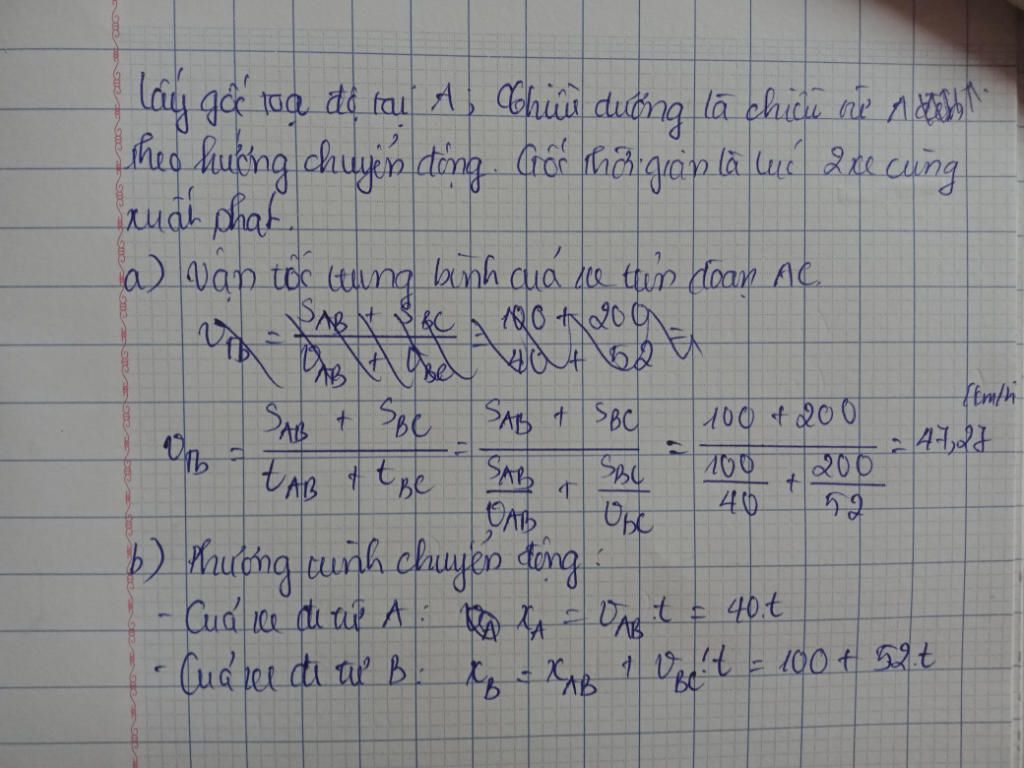 Lấy gốc toạ độ tại A, chiều dương là chiều từ A
theo hướng chuyển động. Gốc thời gian là lúc 2 xe cùng
xuất phát.
a) Vận tốc trung bình của xe trên đoạn AC.
v_TB = (S_AB + S_BC)/(v_AB + v_BC) = (100 + 200)/(40 + 52) =
v_TB = (S_AB + S_BC)/(t_AB + t_BC) = (S_AB + S_BC)/(S_AB/v_AB + S_BC/v_BC) = (100 + 200)/(100/40 + 200/52) = 47,27 (km/h
b) Phương trình chuyển động:
- Của xe đi từ A: x_A = v_AB.t = 40.t
- Của xe đi từ B: x_B = x_AB + v_BC.t = 100 + 52.t